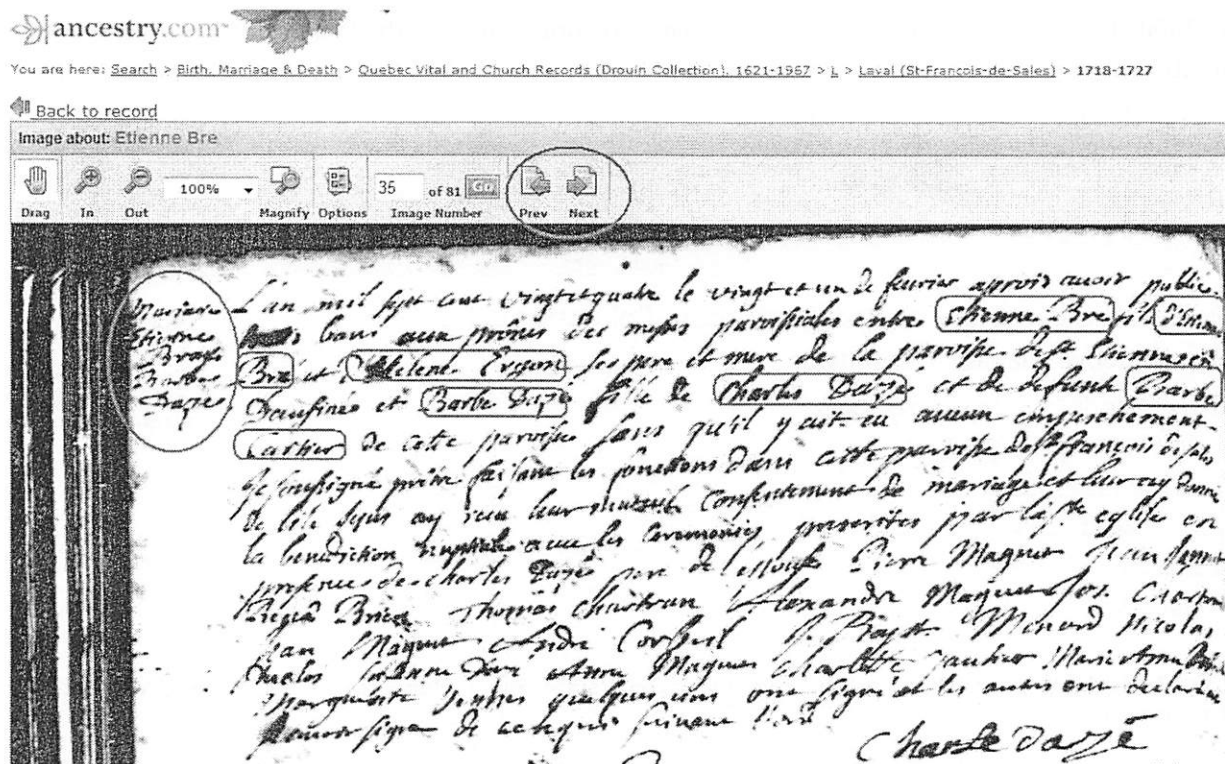 ancestry.com
You are here: Search > Birth, Marriage & Death > Quebec Vital and Church Records (Drouin Collection), 1621-1967 > L > Laval (St-Francois-de-Sales) > 1718-1727
Back to record
Image about: Etienne Bre
100%
35 of 81 Go
Drag In Out Magnify Options Image Number Prev Next
Mariage
Etienne
Barbe
Dazés
L'an mil sept cent vingt et quatre le vingt et un de fevrier apprès avoir publié
bans aux prônes des messes paroissiales entre Etienne Bre fils d'Etienne
Bre et d'Helene Ses pere et mere de la paroisse de St.
et Barbe Dazé fille de Charles Dazés et de defunte Barbe
Cartier de cette paroisse sans qu'il y ait eu aucun empeschement
je soussigné faisant les fonctions dans cette paroisse de St françois de sales
de ay leur mutuel consentement de mariage et leur ay donné
la benediction nuptiale avec les ceremonies prescrites par la ste eglise en
presence de charles Dazés pere de Pierre Maguet Jean
Thomas chartran Alexandre Maguet
Jean Maguet André Menard Nicolas
Anne Maguet charlotte gautier Marie Anne
Marguerite quelques uns ont signé et les autres ont declaré
signer de ce
Charle dazé